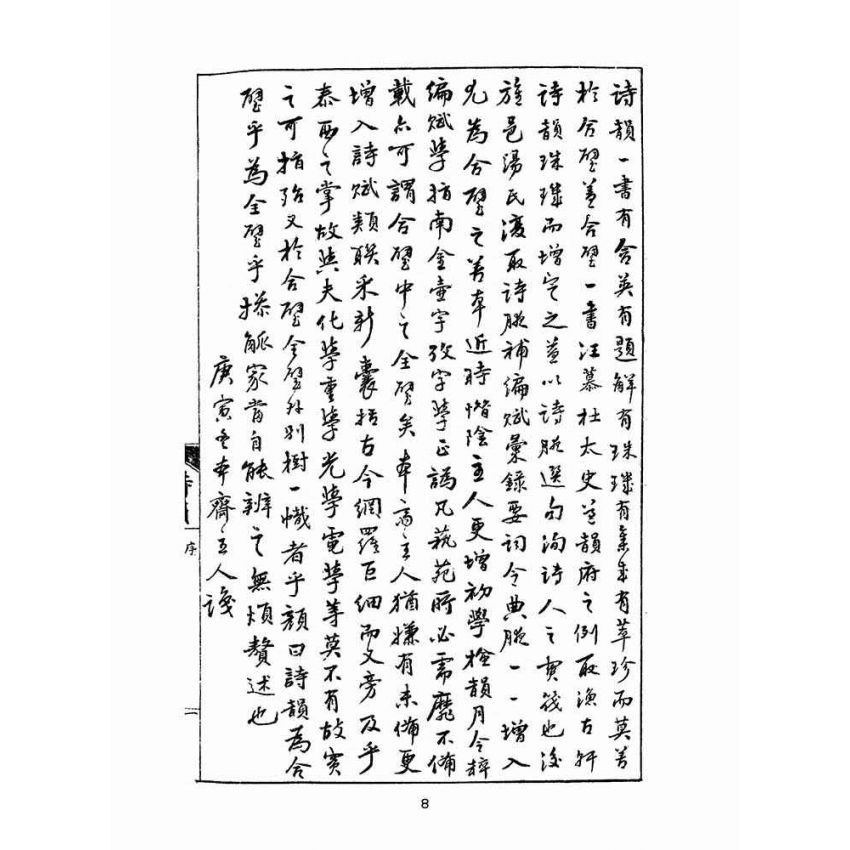 詩韻一書有含英有題解有珠璣有集成有萃珍而莫善
於合璧蓋合璧一書汪慕杜太史芝韻府之例取漁古軒
詩韻珠璣而增定之並以詩腋選句洵詩人之寶筏也後
旌邑湯氏復取詩腋補編賦彙錄要詞令典腋一一增入
尤為合璧之善本近時惜陰主人更增初學檢韻月令粹
編賦學指南金壺字攷字學正譌凡藝苑所必需靡不備
載亦可謂合璧中之全璧矣本齋主人猶嫌有未備更
增入詩賦類聯采新囊括古今網羅巨細而又旁及乎
泰西之掌故與夫化學重學光學電學等莫不有故實
之可指殆又於合璧全璧外別樹一幟者乎顏曰詩韻為合
璧乎為全璧乎操觚家當自能辨之無煩贅述也
庚寅冬本齋主人識
序
一
8